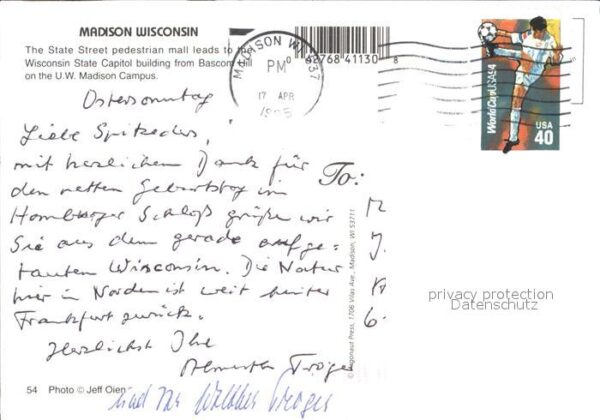 MADISON WISCONSIN
The State Street pedestrian mall leads to the
Wisconsin State Capitol building from Bascom
on the U.W. Madison Campus.
0 42768 41130 8
MADISON WI 537
PM
17 APR
1995
World Cup USA 94
USA
40
Ostersonntag
Liebe
mit herzlichem Dank für
den netten Geburtstag im
Homburger Schloß grüßen wir
Sie aus dem gerade aufge=
tauten Wisconsin. Die Natur
hier im Norden ist weit hinter
Frankfurt zurück.
Herzlichst Ihre
Almuth Tröger
und Ihr Walther Tröger
To:
© Argonaut Press, 1706 Vilas Ave., Madison, WI 53711
privacy protection
Datenschutz
54 Photo © Jeff Oien